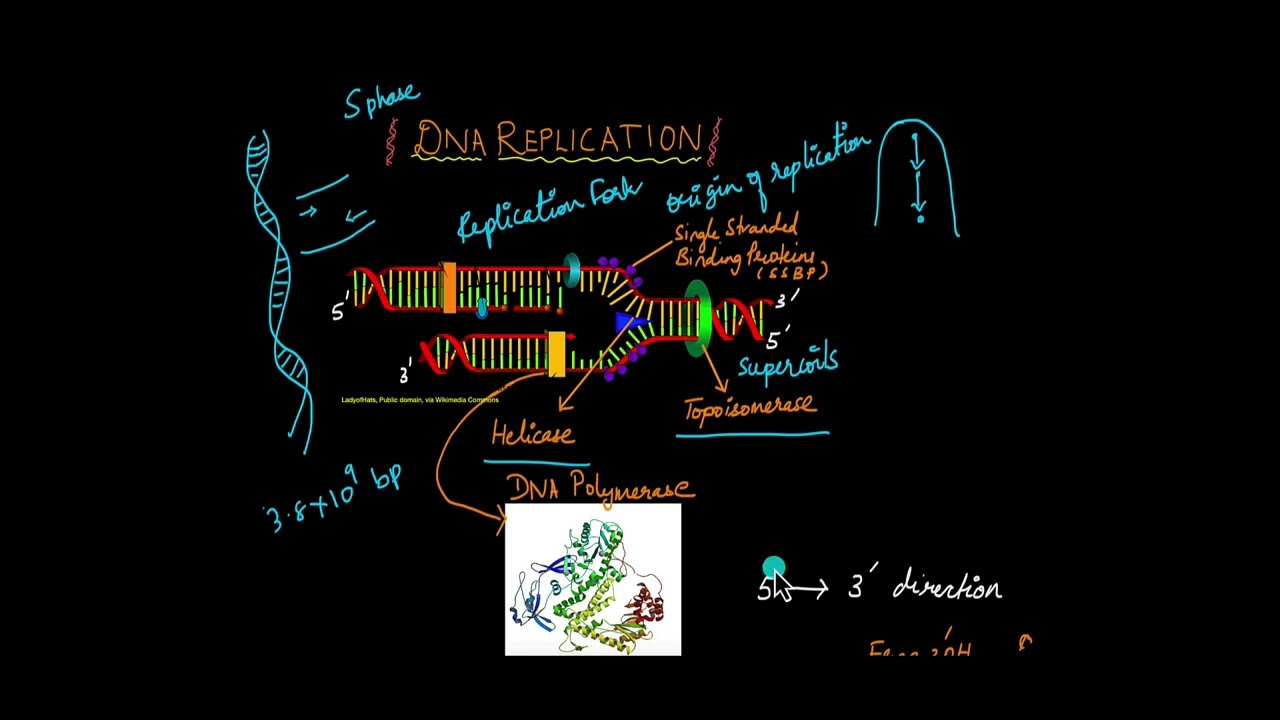 S phase
DNA REPLICATION
Replication Fork
Origin of replication
Single Stranded
Binding Proteins
(SSBP)
5'
3'
3'
5'
Supercoils
LadyofHats, Public domain, via Wikimedia Commons
Topoisomerase
Helicase
3.8x10⁹ bp
DNA Polymerase
5' → 3' direction